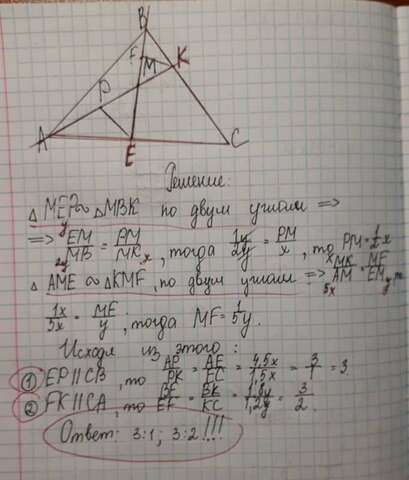 B
F
M
K
P
A
E
C
Решение:
△ MEP ∾ △MBK по двум углам ⇒
⇒ y EM / 2y MB = PM / MK x, тогда 1y / 2y = PM / x, то PM = 1/2 x
△ AME ∾ △KMF, по двум углам ⇒ x MK / 5x AM = MF / EM y, то
1x / 5x = MF / y, тогда MF = 1/5 y.
Исходя из этого:
① EP || CB, то AP / PK = AE / EC = 4,5x / 1,5x = 3 / 1 = 3
② FK || CA, то BF / EF = BK / KC = 1,8y / 1,2y = 3 / 2.
Ответ: 3:1; 3:2 !!!